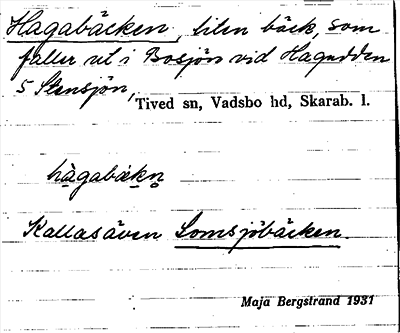 Hagabäcken, liten bäck, som
faller ut i Bosjön vid Hagudden
S Stensjön,
Tived sn, Vadsbo hd, Skarab. l.
hàgabäkn̥
Kallas även Lomsjöbäcken.
Maja Bergstrand 1931